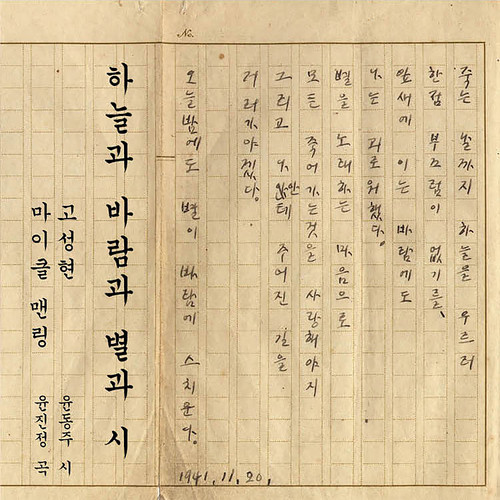 No.
죽는 날까지 하늘을 우르러
한점 부끄럼이 없기를,
잎새에 이는 바람에도
나는 괴로워했다.
별을 노래하는 마음으로
모든 죽어가는것을 사랑해야지
그리고 나안테 주어진 길을
거러가야겠다.
오늘밤에도 별이 바람에 스치운다.
1941. 11. 20.
하늘과 바람과 별과 시
고성현 윤동주 시
마이클 맨링 윤진정 곡